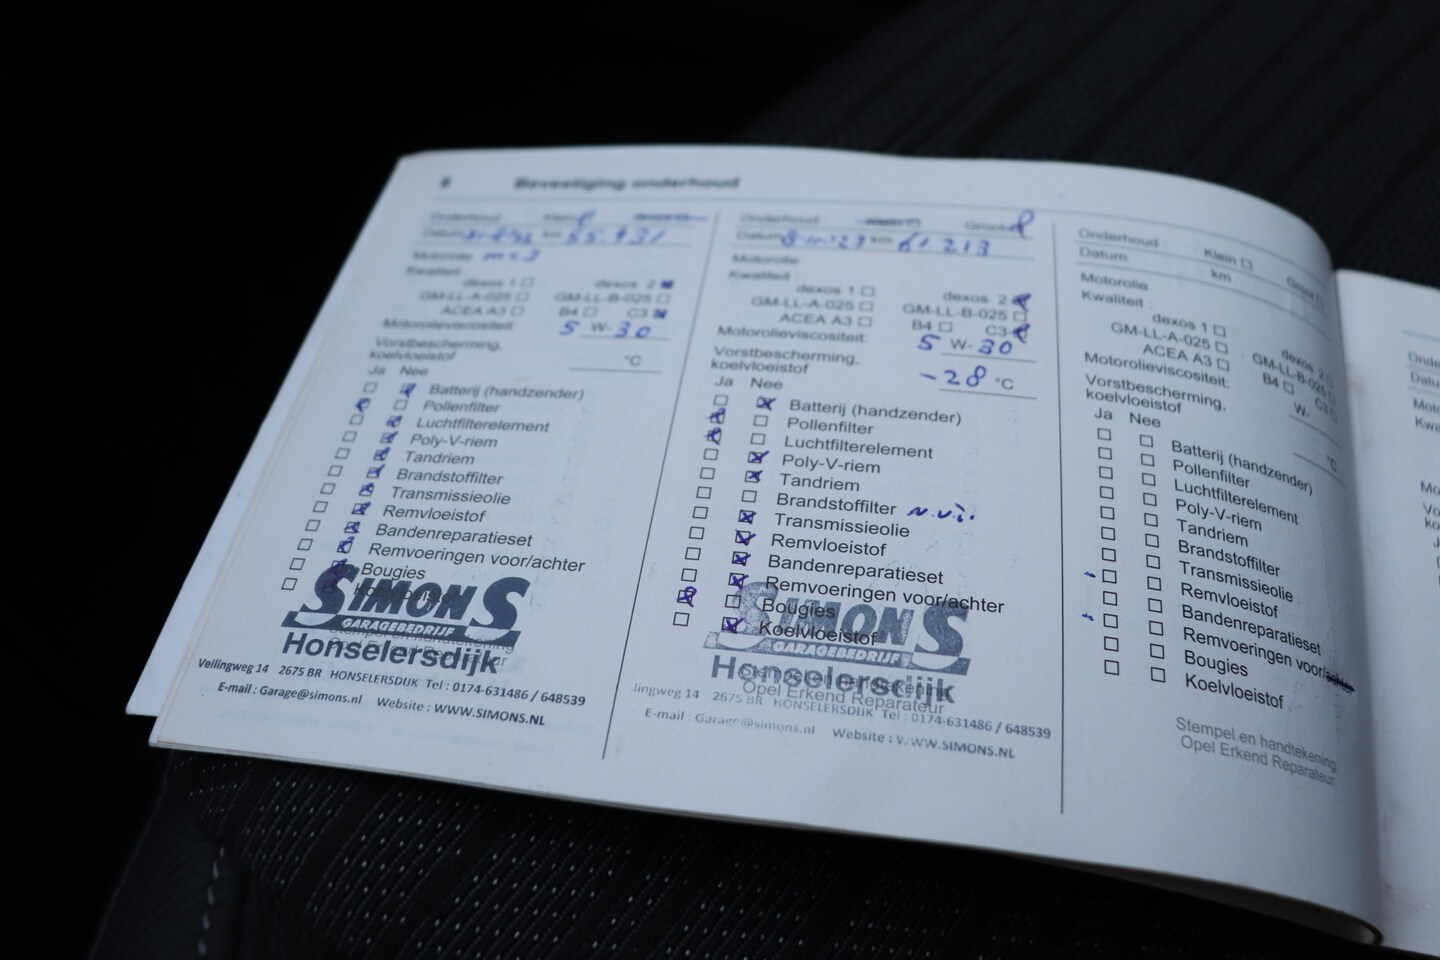 8 Bevestiging onderhoud
Onderhoud Klein
km 55.931
Motorolie
Kwaliteit
dexos 1 dexos 2
GM-LL-A-025 GM-LL-B-025
ACEA A3 B4 C3
Motorolieviscositeit: 5 W- 30
Vorstbescherming,
koelvloeistof °C
Ja Nee
Batterij (handzender)
Pollenfilter
Luchtfilterelement
Poly-V-riem
Tandriem
Brandstoffilter
Transmissieolie
Remvloeistof
Bandenreparatieset
Remvoeringen voor/achter
Bougies
SIMONS
GARAGEBEDRIJF
Honselersdijk
Veilingweg 14 2675 BR HONSELERSDIJK Tel : 0174-631486 / 648539
E-mail : Garage@simons.nl Website : WWW.SIMONS.NL
Onderhoud Klein Groot
Datum km 61.213
Motorolie
Kwaliteit
dexos 1 dexos 2
GM-LL-A-025 GM-LL-B-025
ACEA A3 B4 C3
Motorolieviscositeit: 5 W- 30
Vorstbescherming,
koelvloeistof -28 °C
Ja Nee
Batterij (handzender)
Pollenfilter
Luchtfilterelement
Poly-V-riem
Tandriem
Brandstoffilter
Transmissieolie
Remvloeistof
Bandenreparatieset
Remvoeringen voor/achter
Bougies
Koelvloeistof
SIMONS
GARAGEBEDRIJF
Honselersdijk
Stempel en handtekening
Opel Erkend Reparateur
lingweg 14 2675 BR HONSELERSDIJK Tel : 0174-631486 / 648539
E-mail : Garage@simons.nl Website : WWW.SIMONS.NL
Onderhoud Klein Groot
Datum km
Motorolie
Kwaliteit
dexos 1 dexos 2
GM-LL-A-025 GM-LL-B-025
ACEA A3 B4 C3
Motorolieviscositeit: W-
Vorstbescherming,
koelvloeistof °C
Ja Nee
Batterij (handzender)
Pollenfilter
Luchtfilterelement
Poly-V-riem
Tandriem
Brandstoffilter
Transmissieolie
Remvloeistof
Bandenreparatieset
Remvoeringen voor/achter
Bougies
Koelvloeistof
Stempel en handtekening
Opel Erkend Reparateur